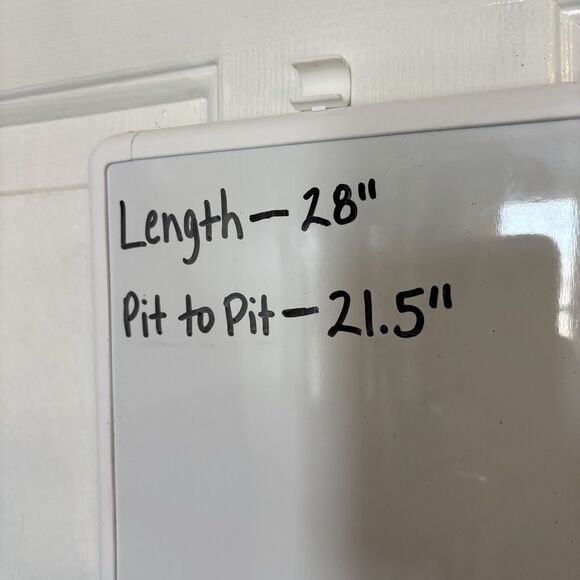 Length - 28"
Pit to Pit - 21.5"